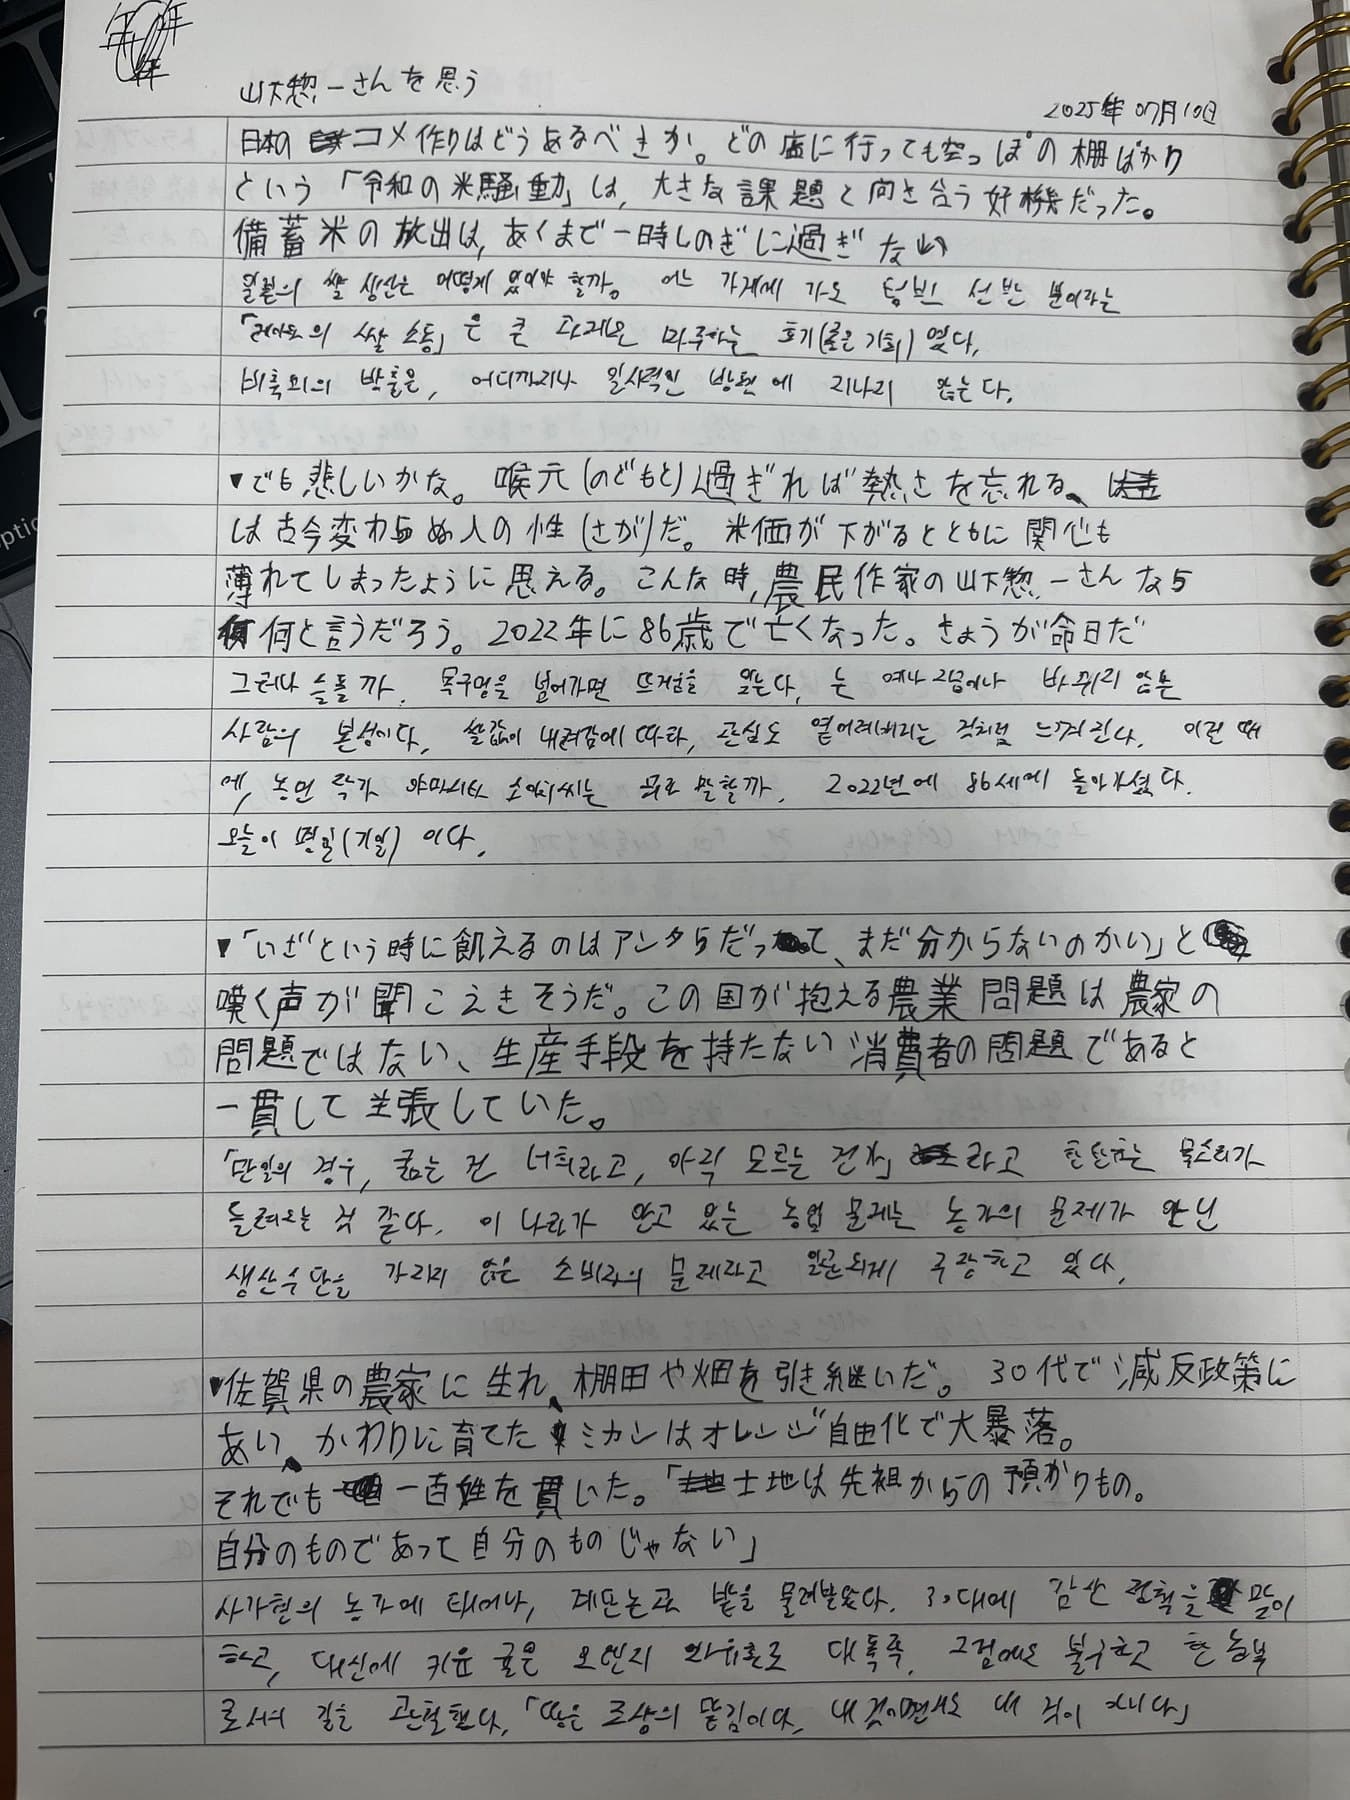 年年年
山下惣一さんを思う
2025年07月10日
日本の コメ作りはどうあるべきか。どの店に行っても空っぽの棚ばかり
という「令和の米騒動」は、大きな課題と向き合う好機だった。
備蓄米の放出は、あくまで一時しのぎに過ぎない
일본의 쌀 생산은 어떻게 있어야 할까. 어느 가게에 가도 텅빈 선반 뿐이라는
「레이와의 쌀 소동」은 큰 과제와 마주하는 호기(좋은 기회) 였다.
비축미의 방출은, 어디까지나 일시적인 방편에 지나지 않는다.
▼でも悲しいかな。喉元(のどもと)過ぎれば熱さを忘れる、
は古今変わらぬ人の性(さが)だ。米価が下がるとともに関心も
薄れてしまったように思える。こんな時、農民作家の山下惣一さんなら
何と言うだろう。2022年に86歳で亡くなった。きょうが命日だ
그러나 슬플까. 목구멍을 넘어가면 뜨거움을 잊는다, 는 예나 지금이나 바뀌지 않는
사람의 본성이다. 쌀값이 내려감에 따라, 관심도 옅어져버리는 것처럼 느껴진다. 이런 때
에, 농민 작가 야마시타 소이치씨는 뭐라 말할까. 2022년에 86세에 돌아가셨다.
오늘이 명일(기일) 이다.
▼「いざという時に飢えるのはアンタらだって、まだ分からないのかい」と
嘆く声が聞こえきそうだ。この国が抱える農業問題は農家の
問題ではない、生産手段を持たない消費者の問題であると
一貫して主張していた。
「만일의 경우, 굶는 건 너희라고, 아직 모르는 건가」 라고 한탄하는 목소리가
들려오는 것 같다. 이 나라가 안고 있는 농업 문제는 농가의 문제가 아닌
생산수단을 가지지 않은 소비자의 문제라고 일관되게 주장하고 있다.
▼佐賀県の農家に生れ、棚田や畑を引き継いだ。30代で減反政策に
あい、かわりに育てた ミカンはオレンジ自由化で大暴落。
それでも 一百姓を貫いた。「土地は先祖からの預かりもの。
自分のものであって自分のものじゃない」
사가현의 농가에 태어나, 계단논과 밭을 물려받았다. 30대에 감산 정책을 맞이
하고, 대신에 키운 귤은 오렌지 자유화로 대폭락. 그럼에도 불구하고 한 농부
로서의 길을 관철했다. 「땅은 조상의 맡김이다. 내 것이면서도 내 것이 아니다」